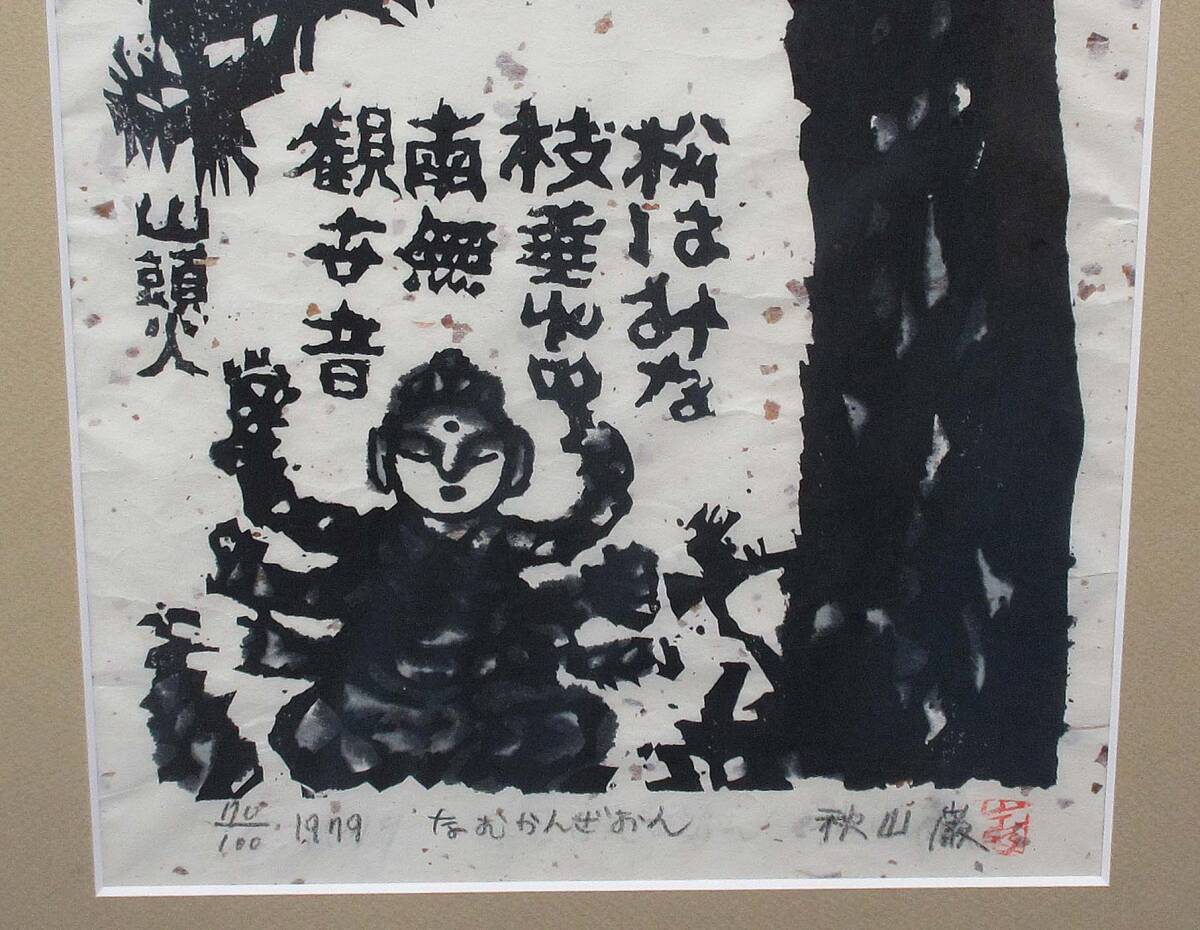 松はみな
枝垂れて
南無
観世音
山頭火
70/100 1979 なむかんぜおん 秋山巌